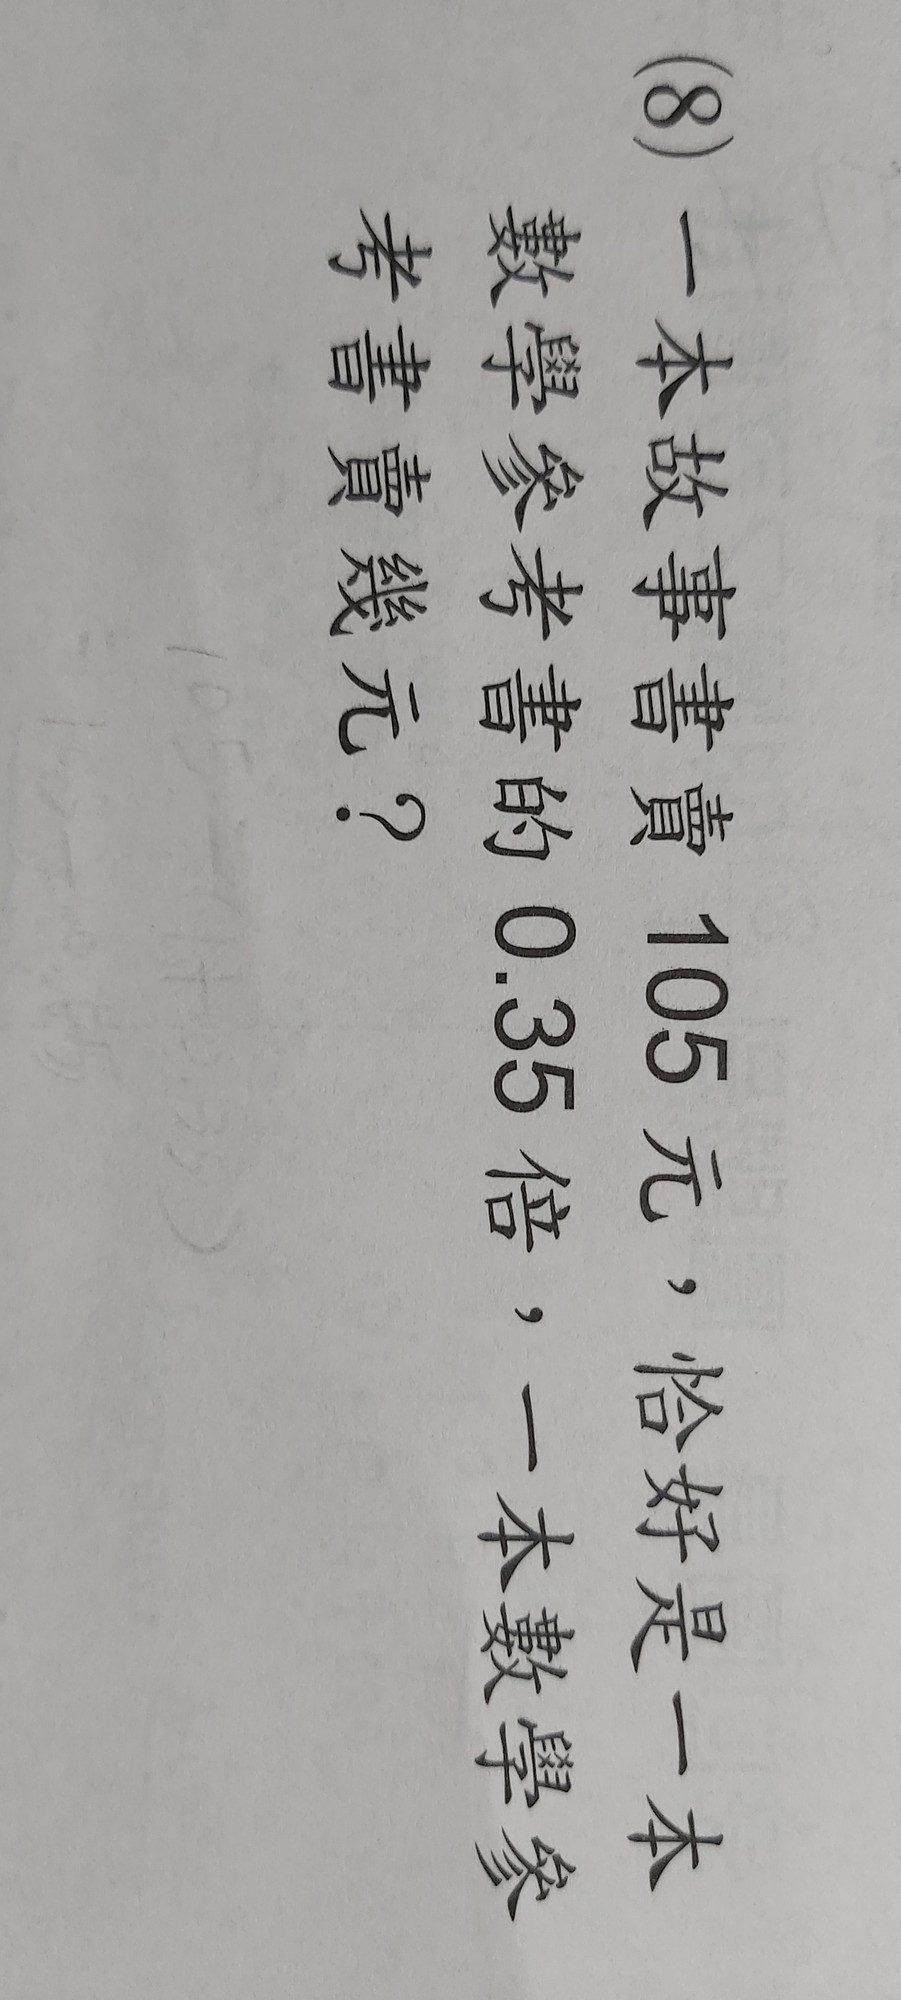 (8) 一本故事書賣 105 元，恰好是一本
數學參考書的 0.35 倍，一本數學參
考書賣幾元？